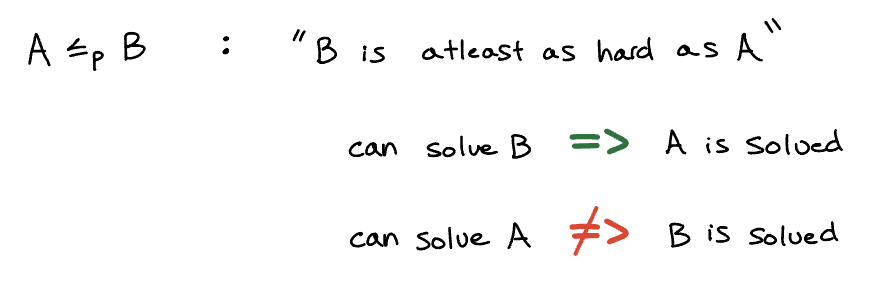 A ≤p B : "B is atleast as hard as A"
can solve B => A is solved
can solve A ≠> B is solved